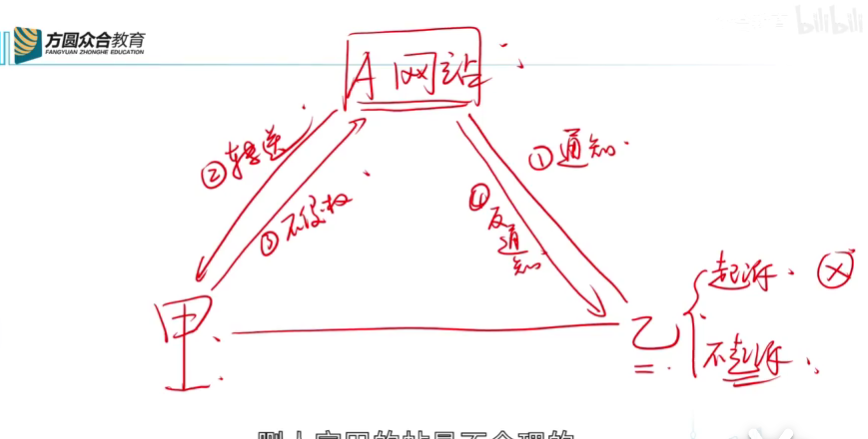 方圆众合教育
FANGYUAN ZHONGHE EDUCATION
bilibili
A 网站
②转送
①通知
③不侵权
④反通知
甲
乙
起诉
不起诉